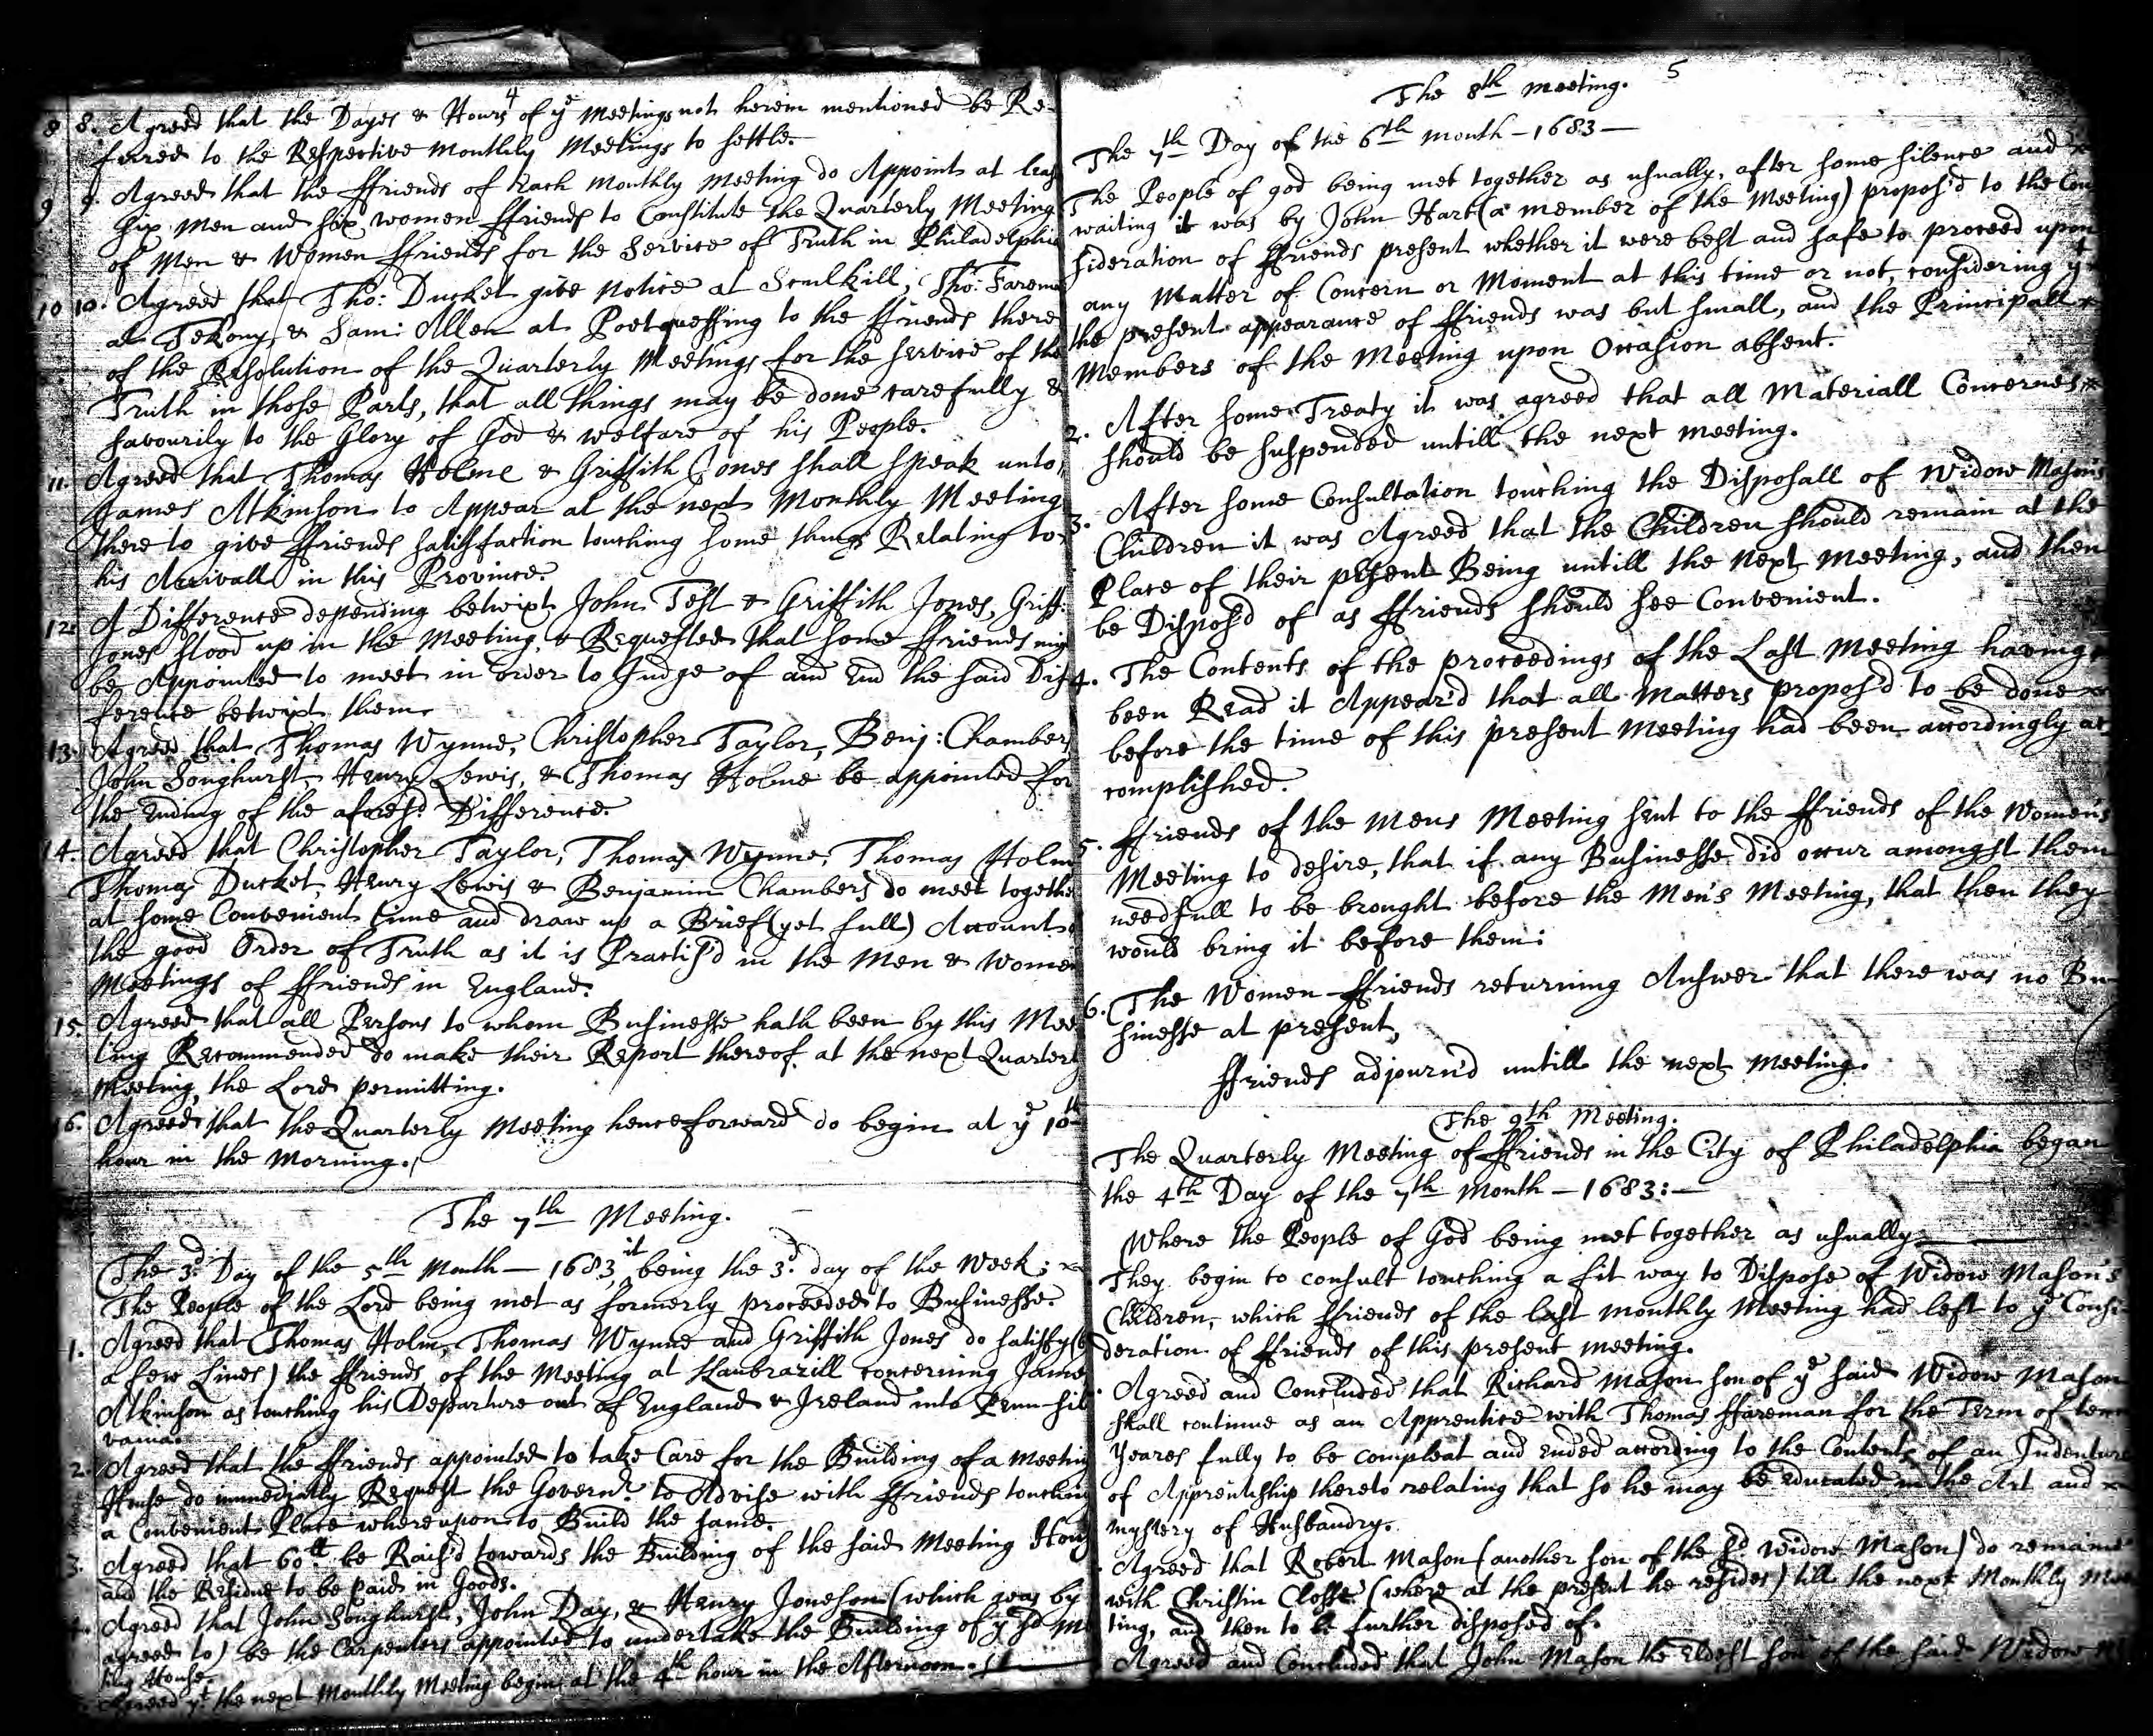 4
8 8. Agreed that the Dayes & Hours of ye Meetings not herein mentioned be Re-
ferred to the Respective Monthly Meetings to settle.
9 9. Agreed that the ffriends of Each Monthly Meeting do Appoint at leas
six Men and six women ffriends to Constitute the Quarterly Meeting
of Men & Women ffriends for the Service of Truth in Philadelphia
10 10. Agreed that Tho: Ducket give Notice at Scullkill, Tho: Farem
at Tekony, & Sam: Allen at Poetquessing to the ffriends there
of the Resolution of the Quarterly Meetings for the service of the
Truth in those Parts, that all things may be done carefully &
savourily to the Glory of God & welfare of his People.
11. Agreed that Thomas Holme & Griffith Jones shall speak unto
James Atkinson to Appear at the next Monthly Meeting
there to give ffriends satisfaction touching some things Relating to
his Arrivall in this Province.
12. A Difference depending betwixt John Test & Griffith Jones, Griff:
Jones stood up in the Meeting, & Requested that some ffriends mig
be Appointed to meet in order to Judge of and End the said Dif
ference betwixt them.
13. Agreed that Thomas Wynne, Christopher Taylor, Benj: Chambers
John Songhurst, Henry Lewis, & Thomas Holme be appointed for
the Ending of the aforesd. Difference.
14. Agreed that Christopher Taylor, Thomas Wynne, Thomas Holm
Thomas Ducket, Henry Lewis & Benjamin Chambers do meet togethe
at some Convenient time and draw up a Brief (yet full) Account
the good Order of Truth as it is Practis'd in the Men & Women
Meetings of ffriends in England.
15. Agreed that all Persons to whom Businesse hath been by this Mee
ting Recommended do make their Report thereof at the next Quarterl
Meeting, the Lord permitting.
16. Agreed that the Quarterly Meeting henceforward do begin at ye 10th
hour in the Morning.
The 7th Meeting.
The 3d. Day of the 5th Month - 1683 it being the 3d. day of the Week;
The People of the Lord being met as formerly proceeded to Businesse.
1. Agreed that Thomas Holm, Thomas Wynne and Griffith Jones do satisfy (b
a few Lines) the ffriends of the Meeting at Clanbrazill concerning Jame
Atkinson as touching his Departure out of England & Ireland into Penn-sil
vania.
2. Agreed that the ffriends appointed to take Care for the Building of a Meetin
House do immediatly Request the Governr. to Advise with ffriends touching
a Convenient Place whereupon to Build the same.
3. Agreed that 60ll be Rais'd towards the Building of the said Meeting Hous
and the Residue to be paid in Goods.
4. Agreed that John Songhurst, John Day, & Henry Joneson (which was by
agreed to) be the Carpenters appointed to undertake the Building of ye sd Me
ting House.
Agreed yt. the next Monthly Meeting begin at the 4th hour in the Afternoon.
5
The 8th Meeting.
The 7th Day of the 6th Month - 1683 -
The People of god being met together as usually, after some silence and
waiting it was by John Hart (a member of the Meeting) propos'd to the Con
sideration of ffriends present whether it were best and safe to proceed upon
any Matter of Concern or Moment at this time or not, considering yt
the present appearance of ffriends was but small, and the Principall
Members of the Meeting upon Occasion absent.
2. After some Treaty it was agreed that all Materiall Concernes
should be suspended untill the next meeting.
3. After some Consultation touching the Disposall of Widow Mason's
Children it was Agreed that the Children should remain at the
Place of their present Being untill the Next Meeting, and then
be Dispos'd of as ffriends should see Convenient.
4. The Contents of the proceedings of the Last Meeting having
been Read it Appear'd that all Matters propos'd to be done
before the time of this present Meeting had been accordingly ac
complished.
5. ffriends of the Mens Meeting sent to the ffriends of the Women's
Meeting to desire, that if any Businesse did occur amongst them
needfull to be brought before the Men's Meeting, that then they
would bring it before them:
6. The Women-ffriends returning Answer that there was no Bu-
sinesse at present,
ffriends adjourn'd untill the next Meeting.
The 9th Meeting.
The Quarterly Meeting of ffriends in the City of Philadelphia began
the 4th Day of the 7th Month - 1683: -
Where the People of God being met together as usually
They begin to consult touching a fit way to Dispose of Widow Mason's
Children, which ffriends of the last Monthly Meeting had left to ye Consi-
deration of ffriends of this present Meeting.
Agreed and Concluded that Richard Mason son of ye said Widow Mason
shall continue as an Apprentice with Thomas ffareman for the Term of ten
Yeares fully to be compleat and ended according to the Contents of an Indenture
of Apprentiship thereto relating that so he may be educated in the Art and
Mystery of Husbandry.
Agreed that Robert Mason (another son of the sd. Widow Mason) do remaine
with Christin Closse (where at the present he resides) till the next Monthly Mee
ting, and then to be further disposed of.
Agreed and Concluded that John Mason the Eldest son of the said Widow